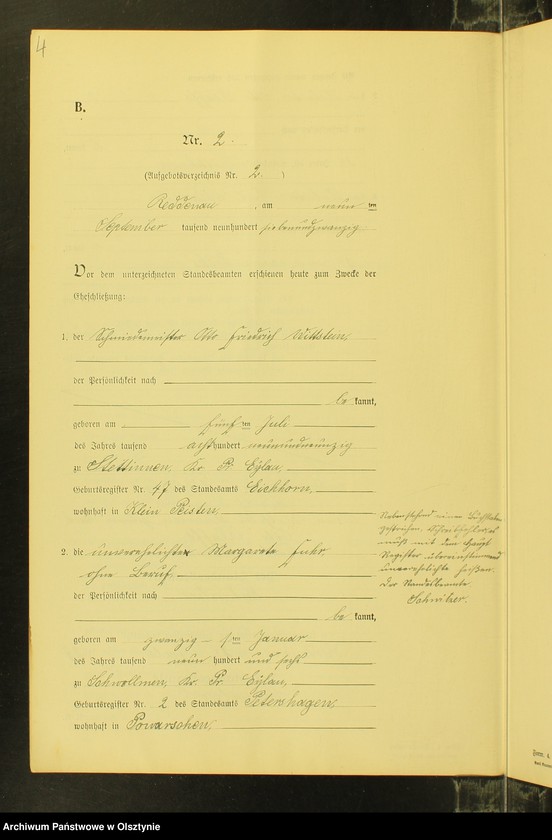 4
B.
Nr. 2.
(Aufgebotsverzeichnis Nr. 2 )
Reddenau, am neun ten
September tausend neunhundert siebenundzwanzig
Vor dem unterzeichneten Standesbeamten erschienen heute zum Zwecke der
Eheschließung:
1. der Schmiedemeister Otto Friedrich Wittstein,
der Persönlichkeit nach
be kannt,
geboren am fünf ten Juli
des Jahres tausend acht hundert neunundneunzig
zu Stettinnen, Kr. Pr. Eylau,
Geburtsregister Nr. 47 des Standesamts Eichhorn,
wohnhaft in Klein Peisten,
2. die unverehelichte Margarete Fuhr,
ohne Beruf
der Persönlichkeit nach
be kannt,
geboren am zwanzig sten Januar
des Jahres tausend neun hundert und sechs
zu Schwollmen, Kr. Pr. Eylau,
Geburtsregister Nr. 2 des Standesamts Petershagen,
wohnhaft in Powarschen,
Nebenstehend einen Buchstaben
gestrichen.
muß mit dem Haupt
Register übereinstimmend
unverehelichte heißen.
Der Standesbeamte
Archiwum Państwowe w Olsztynie